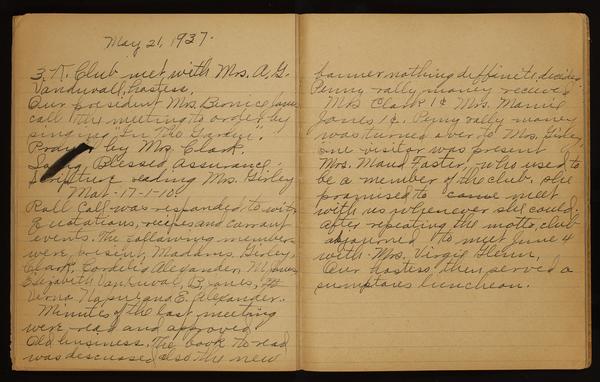 May 21, 1937.
3. K. Club met with Mrs. A. G.
Vanduvall, hostess.
Our president Mrs. Bernice
call the meeting to order by
singing "In The Garden".
Prayer by Mrs. Clark.
Song, Blessed Assurance.
Scripture reading Mrs. Girley
Mat-17-1-10.
Roll Call was responded to with
Quotations, recipes and current
events. The following members
were present, Madams. Girley,
Clark, Cordelia Alexander, M. Jones
Elizabeth Vanduval, B. Jones,
Verna and E. Alexander.
Minutes of the last meeting
were read and approved
Old business. The book to read
was descussed also the new
banner nothing diffinite, decided
Penny rally money received
Mrs Clark 1¢ Mrs. Mamie
Jones 1¢. Penny rally money
was turned over to Mrs. Girley,
one visitor was present
Mrs. Maud Foster, who used to
be a member of the club. she
promised to come meet
with us whenever she could.
After repeating the motto, club
adjourned to meet June 4
with Mrs. Virgie Glenn.
Our hostess, then served a
sumptures luncheon.